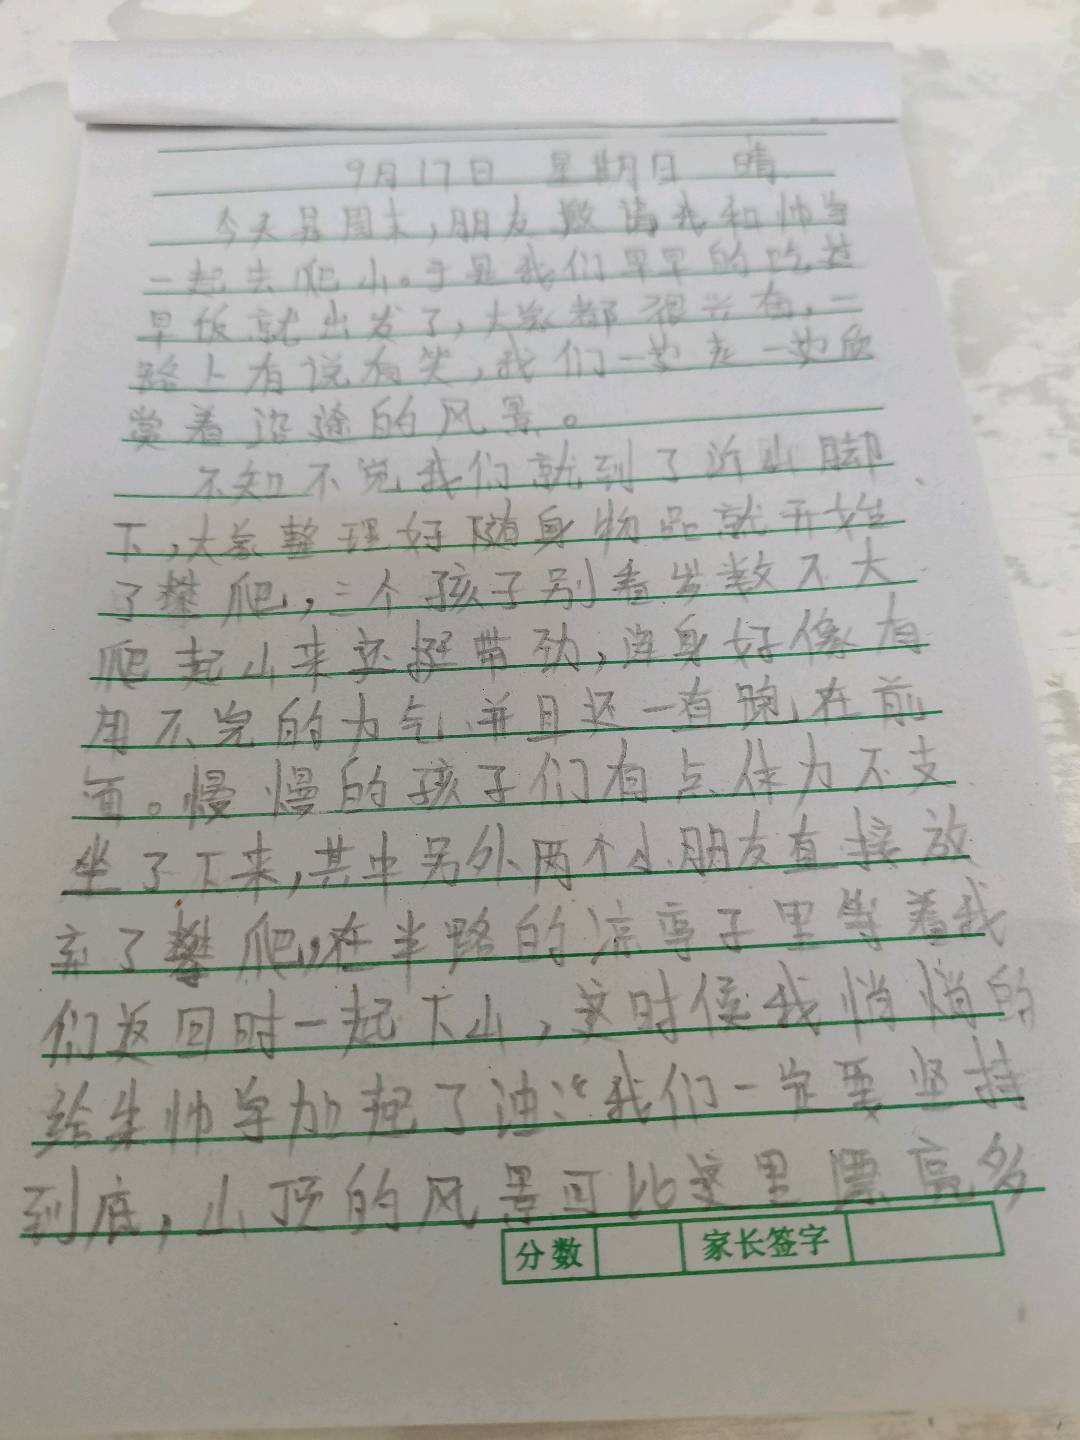 9月17日 星期日 晴
今天是周末,朋友邀请我和帅宇
一起去爬山。于是我们早早的吃过
早饭就出发了,大家都很兴奋,一
路上有说有笑,我们一边走一边欣
赏着沿途的风景。
不知不觉我们就到了沂山脚
下,大家整理好随身物品就开始
了攀爬,三个孩子别看岁数不大
爬起山来还挺带劲,浑身好像有
用不完的力气,并且还一直跑在前
面。慢慢的孩子们有点体力不支
坐了下来,其中另外两个小朋友直接放
弃了攀爬,在半路的凉亭子里等着我
们返回时一起下山,这时侯我悄悄的
给朱帅宇加起了油:“我们一定要坚持
到底,山顶的风景可比这里漂亮多
分数 家长签字